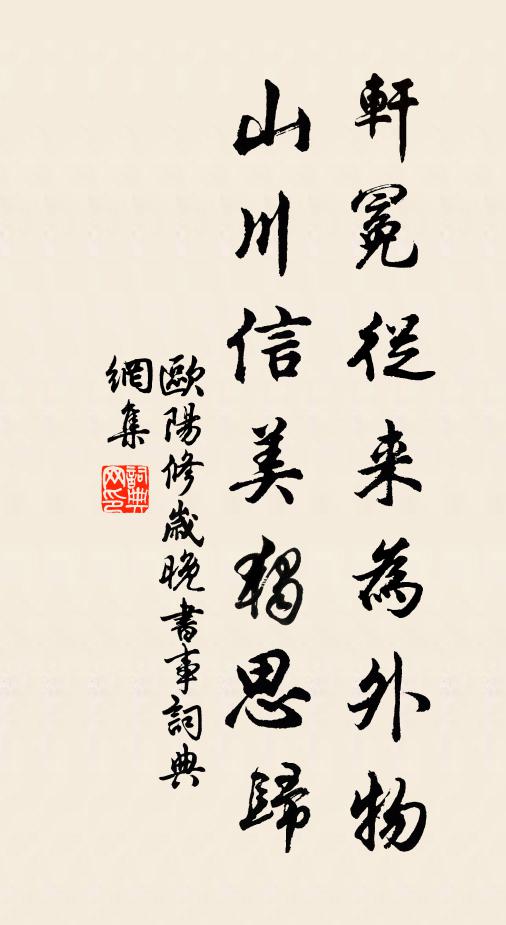 軒冕從来為外物
山川信美獨思歸
歐陽修歲晚書事詞典
網集
詞典網印